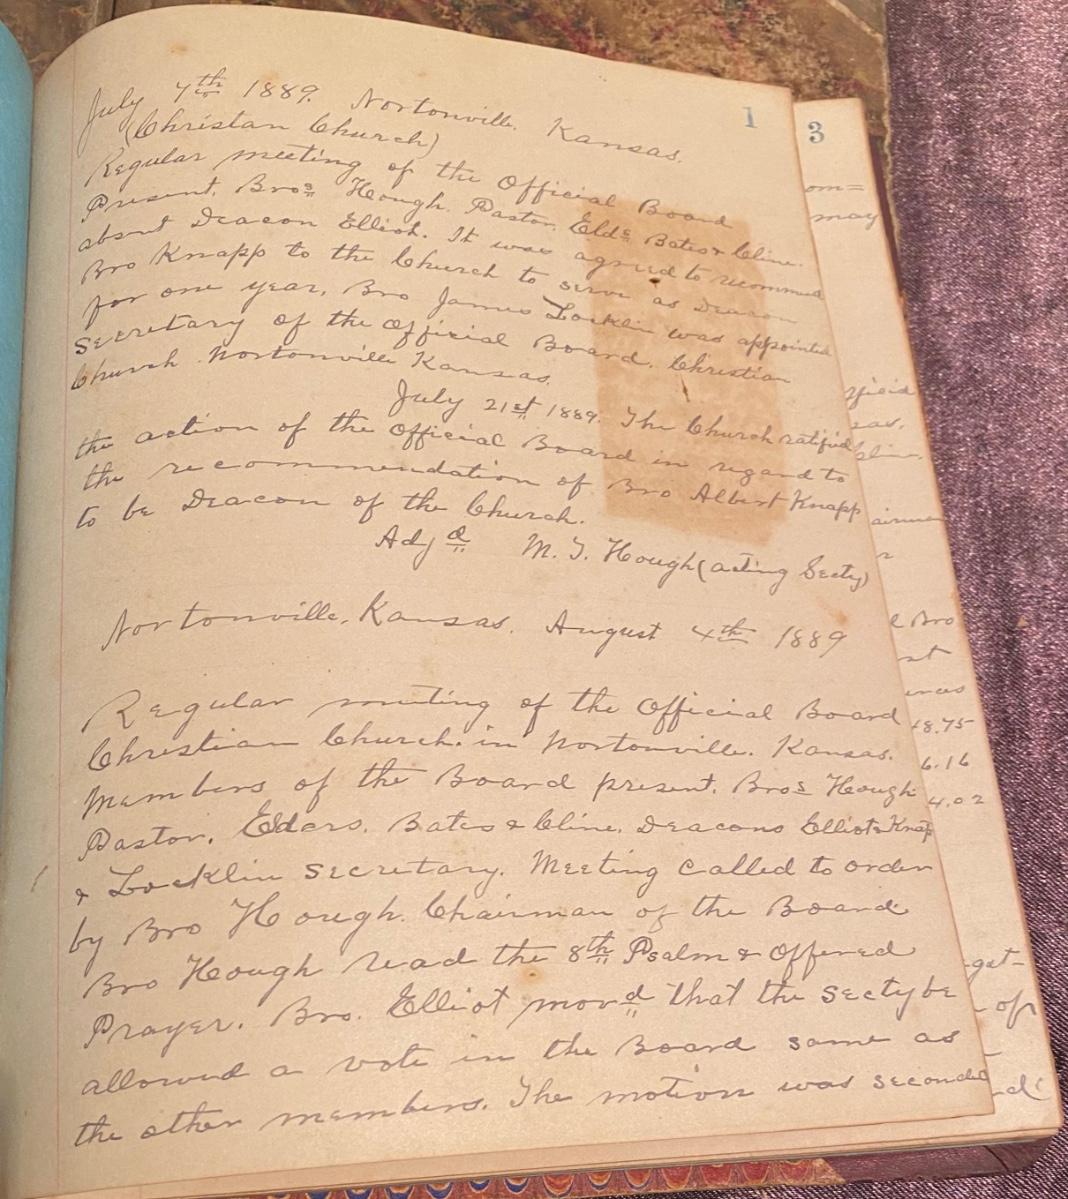 1
July 7th 1889. Nortonville. Kansas.
(Christan Church)
Regular meeting of the Official Board
Present. Bros Hough. Pastor. Elds Bates & Cline.
absent Deacon Elliot. It was agreed to recommend
Bro Knapp to the Church to serve as Deacon
for one year, Bro James Locklin was appointed
Secretary of the Official Board. Christian
Church. Nortonville Kansas.
July 21st 1889. The Church ratified
the action of the Official Board in regard to
the recommendation of Bro Albert Knapp
to be Deacon of the Church.
Adjd M. T. Hough (acting Secty)
Nortonville, Kansas. August 4th 1889
Regular meeting of the Official Board
Christian Church. in Nortonville. Kansas.
Members of the Board present. Bros Hough
Pastor. Elders. Bates & Cline. Deacons Elliot & Knapp
& Locklin Secretary. Meeting called to order
by Bro Hough. Chairman of the Board
Bro Hough read the 8th Psalm & Offered
Prayer. Bro. Elliot movd that the Secty be
allowed a vote in the Board same as
the other members. The motion was seconded
3
om=
may
sas,
Bro
st
48.75
6.16
4.02
gat-
of